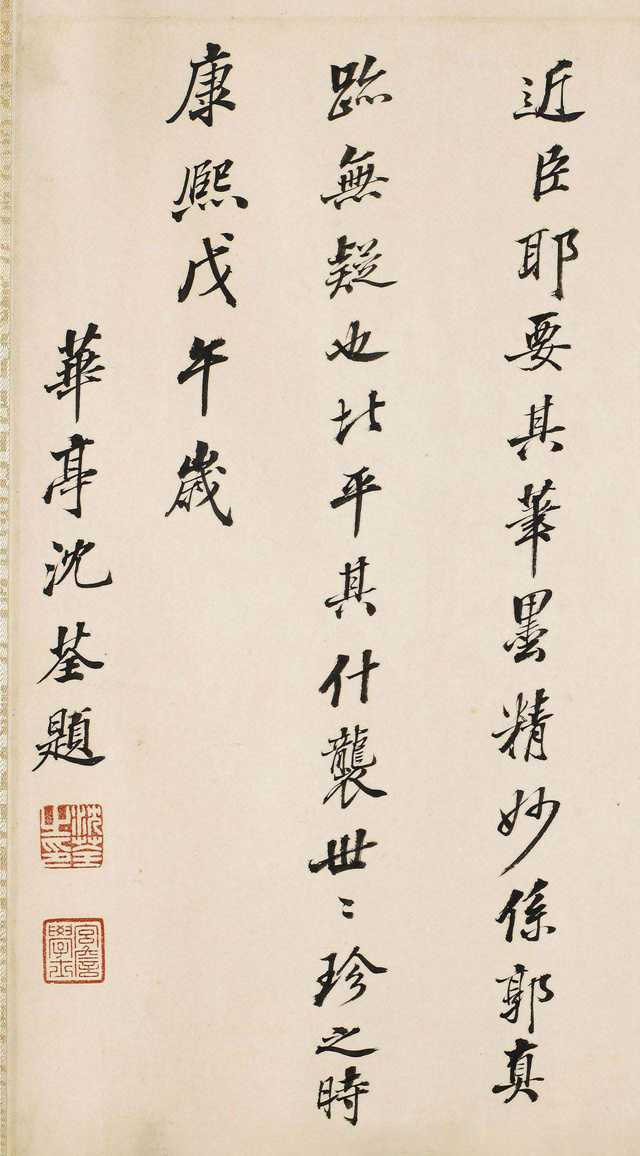 近臣耶要其筆墨精妙係郭真
跡無疑也北平其什襲世〻珍之時
康熙戊午歲
華亭沈荃題
沈荃之印
宮詹學士